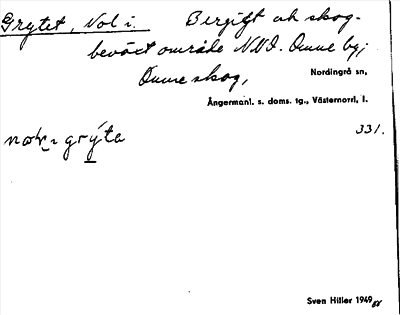 Grytet, Nol i. Bergigt och skog-
beväxt område NNO. Omne by;
Omne skog,
Nordingrå sn,
Ångermanl. s. doms. tg., Västernorrl. l.
331.
grýta
Sven Hiller 1949